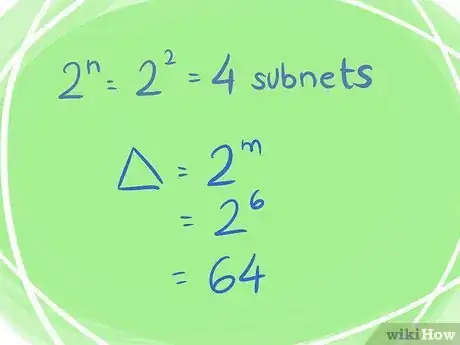 2ⁿ = 2² = 4 subnets
△ = 2ᵐ
= 2⁶
= 64
wikiHow